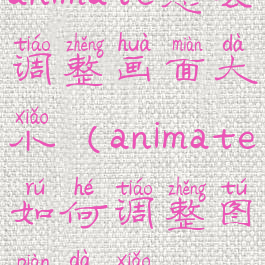 tiáo zhěng huà miàn dà
调整画面大
xiǎo
小（animate
rú hé tiáo zhěng tú
如何调整图